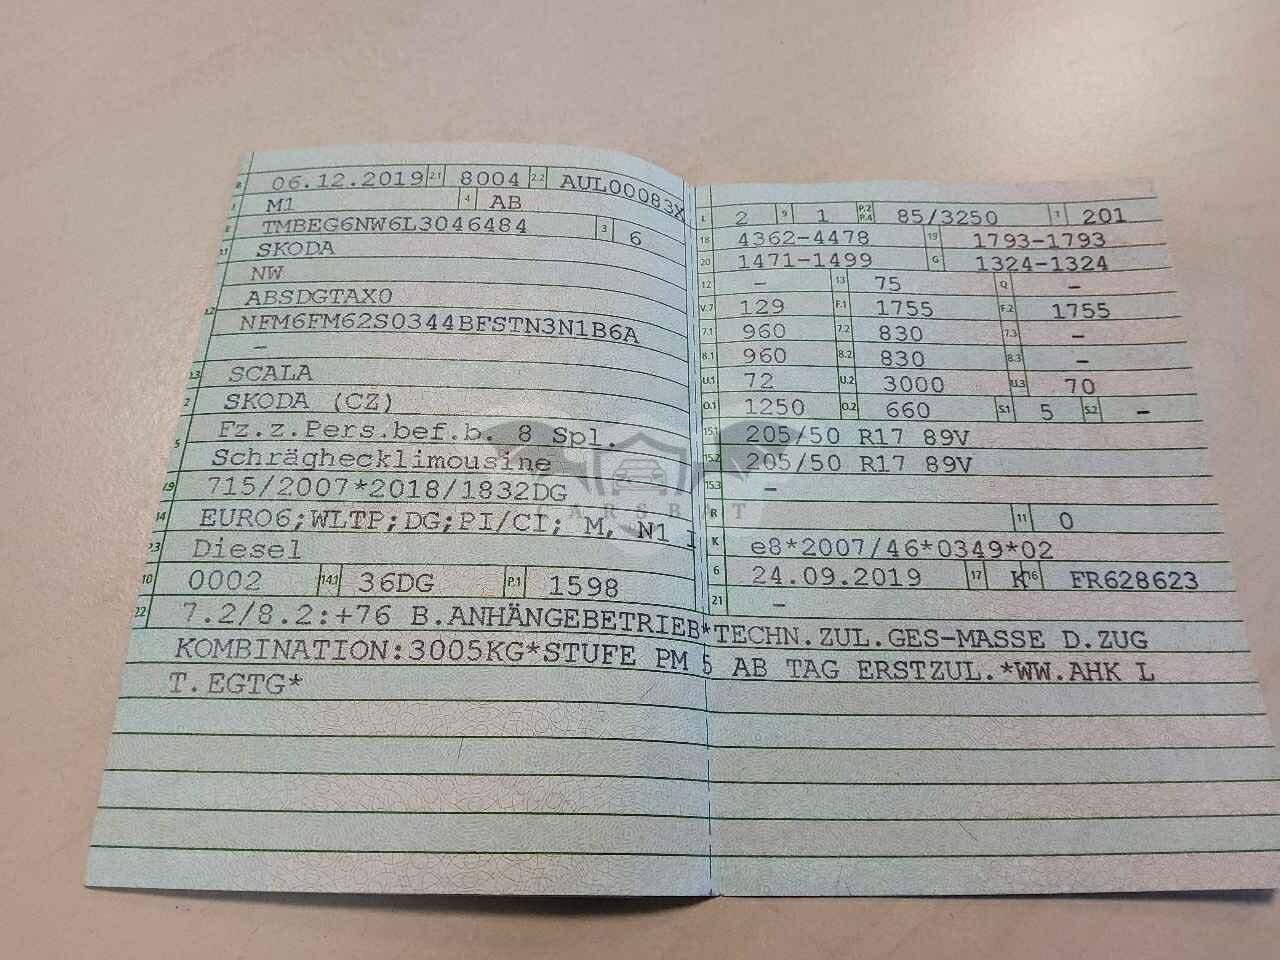 B 06.12.2019 2.1 8004 2.2 AUL00083X
J M1 4 AB
E TMBEG6NW6L3046484 3 6
D.1 SKODA
NW
D.2 ABSDGTAX0
NFM6FM62S0344BFSTN3N1B6A
–
D.3 SCALA
2 SKODA (CZ)
5 Fz.z.Pers.bef.b. 8 Spl.
Schräghecklimousine
V.9 715/2007*2018/1832DG
14 EURO6;WLTP;DG;PI/CI; M, N1 I
P.3 Diesel
10 0002 14.1 36DG P.1 1598
L 2 9 1 P.2 P.4 85/3250 T 201
18 4362-4478 19 1793-1793
20 1471-1499 G 1324-1324
12 – 13 75 Q –
V.7 129 F.1 1755 F.2 1755
7.1 960 7.2 830 7.3 –
8.1 960 8.2 830 8.3 –
U.1 72 U.2 3000 U.3 70
O.1 1250 O.2 660 S.1 5 S.2 –
15.1 205/50 R17 89V
15.2 205/50 R17 89V
15.3 –
R 11 0
K e8*2007/46*0349*02
6 24.09.2019 17 K 16 FR628623
21 –
22 7.2/8.2:+76 B.ANHÄNGEBETRIEB*TECHN.ZUL.GES-MASSE D.ZUG
KOMBINATION:3005KG*STUFE PM 5 AB TAG ERSTZUL.*WW.AHK L
T.EGTG*